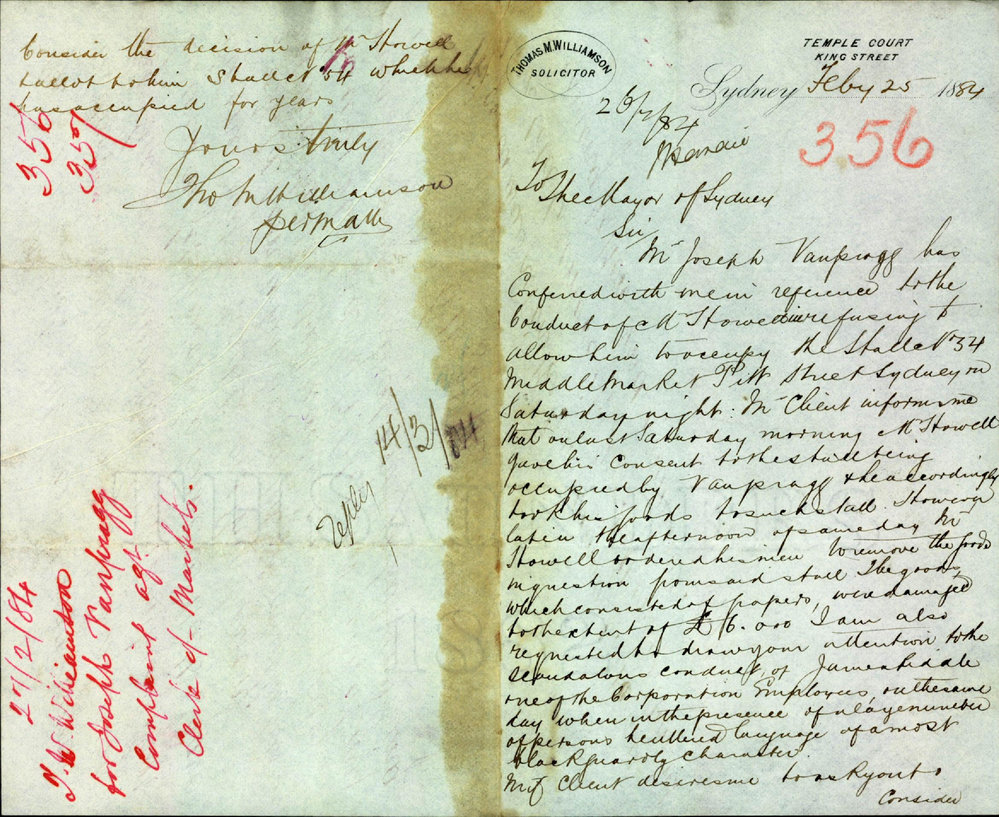 THOMAS M. WILLIAMSON
SOLICITOR
TEMPLE COURT
KING STREET
Sydney Feby 25 1884
26/2/84
356
To
The Mayor of Sydney
Sir
Mr Joseph Vanpragg has
Conferred with me in reference to the
Conduct of Mr Stowell in refusing to
allow him to occupy the Stall No 34
Middle Market Pitt Street Sydney on
Saturday night. My Client informs me
that on last Saturday morning Mr Stowell
gave his Consent to the stall being
occupied by Vanpragg & he accordingly
took his goods to such stall. However
late in the afternoon of same day Mr
Stowell ordered his men to remove the goods
in question from said stall The goods,
which consisted of papers, were damaged
to the extent of £6.00 I am also
requested to draw your attention to the
scandalous conduct of James
one of the Corporation Employees on the same
day when in the presence of a large number
of persons he uttered language of a most
blackguardly character
My Client desires me to ask you to
Consider
Consider the decision of Mr Stowell
& allot to him Stall No 34 which he
has occupied for years
Yours truly
Tho M Williamson
per
356
357
14/3/84
Reply
27/2/84
T. M. Williamson
for Joseph Vanpragg
Complaint agt
Clerk of Markets.